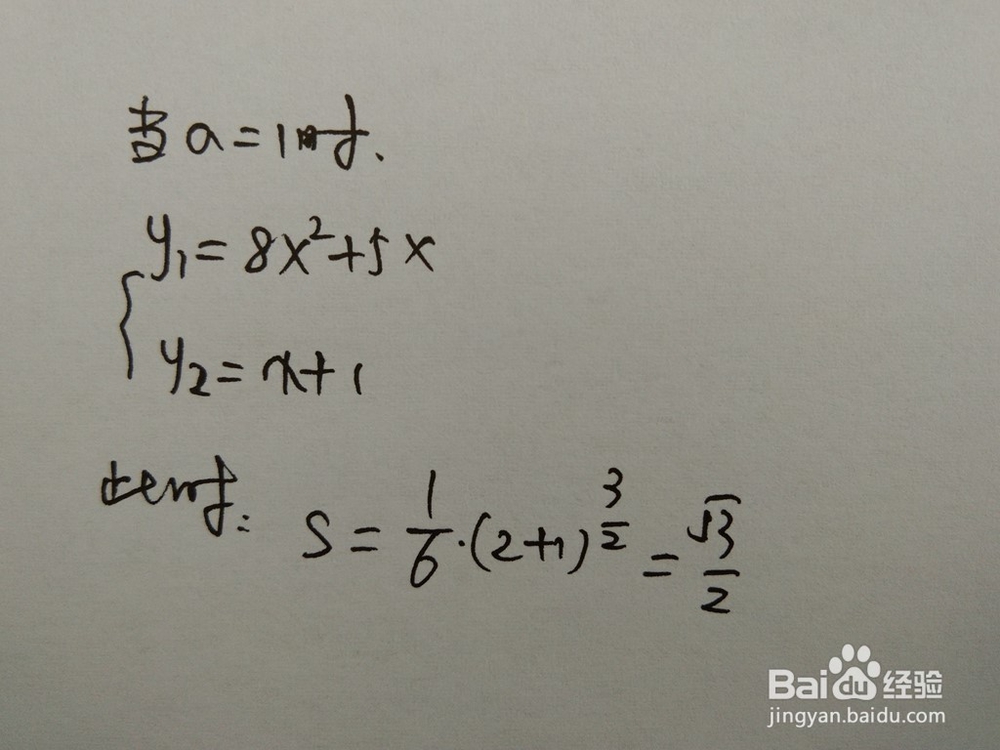 当a=1时.
y₁=8x²+5x
y₂=x+1
此时: S=1/6·(2+1)^(3/2)=√3/2
Baidu经验
jingyan.baidu.com